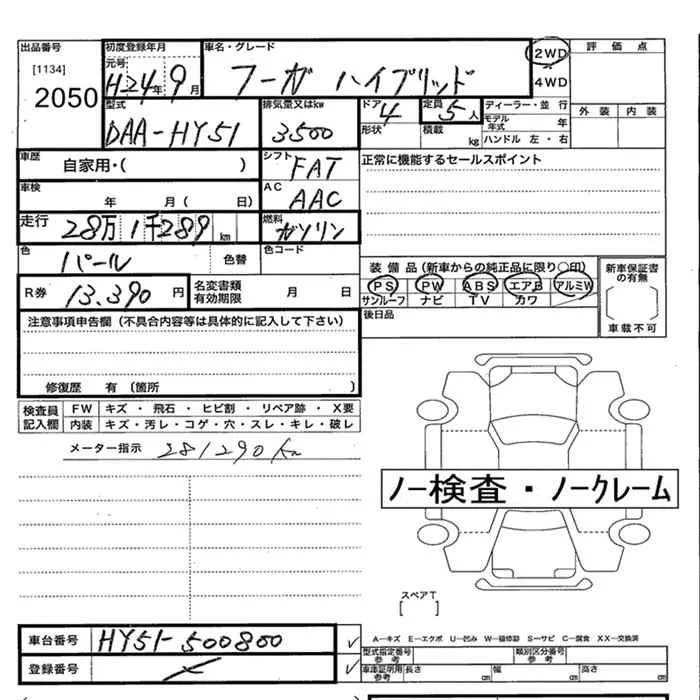 出品番号
[1134]
2050
初度登録年月
元号
H24年9月
車名・グレード
フーガ ハイブリッド
2WD
4WD
評価点
外装 内装
型式
DAA-HY51
排気量又はkw
3500
ドア
4
形状
定員
5人
積載
kg
ディーラー・並行
モデル年式 年
ハンドル 左・右
車歴
自家用・( )
シフト
FAT
正常に機能するセールスポイント
車検
年 月( 日)
AC
AAC
走行
28万1千289km
燃料
ガソリン
色
パール
色替
色コード
装備品(新車からの純正品に限り○印)
PS PW ABS エアB アルミW
サンルーフ ナビ TV カワ
新車保証書の有無
[ ]
車載不可
R券
13.390円
名変書類有効期限
月 日
後日品
注意事項申告欄(不具合内容等は具体的に記入して下さい)
修復歴 有(箇所 )
検査員記入欄
FW キズ・飛石・ヒビ割・リペア跡・X要
内装 キズ・汚レ・コゲ・穴・スレ・キレ・破レ
メーター指示 281290Km
ノー検査・ノークレーム
スペアT
[ ]
車台番号
HY51-500800
登録番号
A―キズ E―エクボ U―凹み W―補修跡 S―サビ C―腐食 XX―交換済
型式指定番号
参考
類別区分番号
参考
車庫証明用
参考
長さ cm 幅 cm 高さ cm